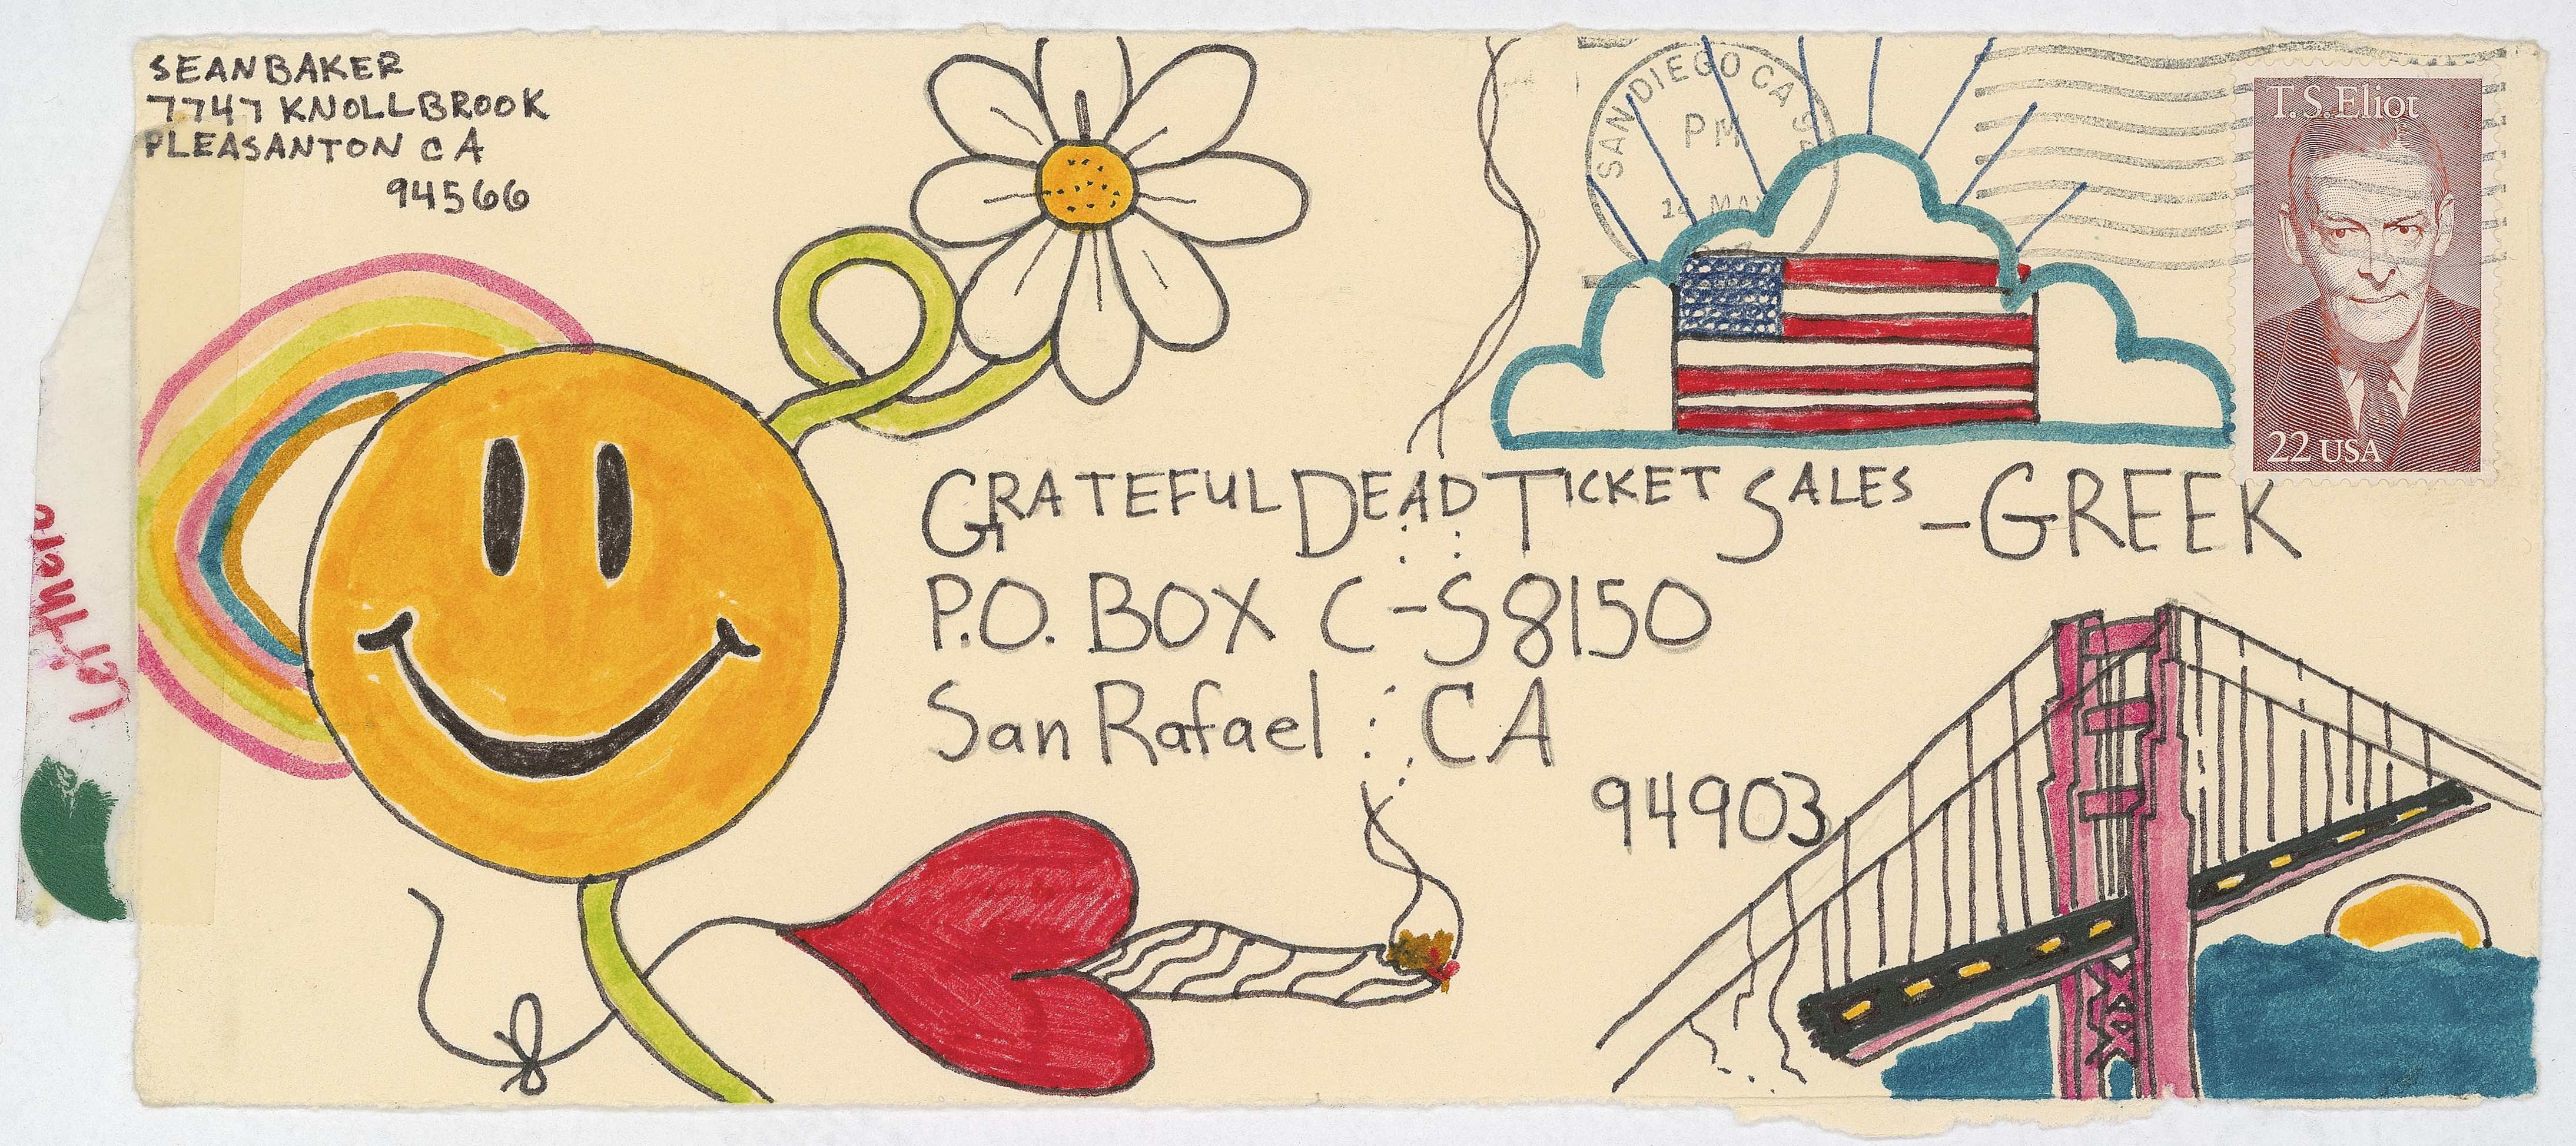 SEAN BAKER
7747 KNOLLBROOK
PLEASANTON CA
94566
SAN DIEGO CA
PM
14 MAY
T.S.Eliot
22 USA
GRATEFUL DEAD TICKET SALES - GREEK
P.O. BOX C-S8150
San Rafael : CA
94903